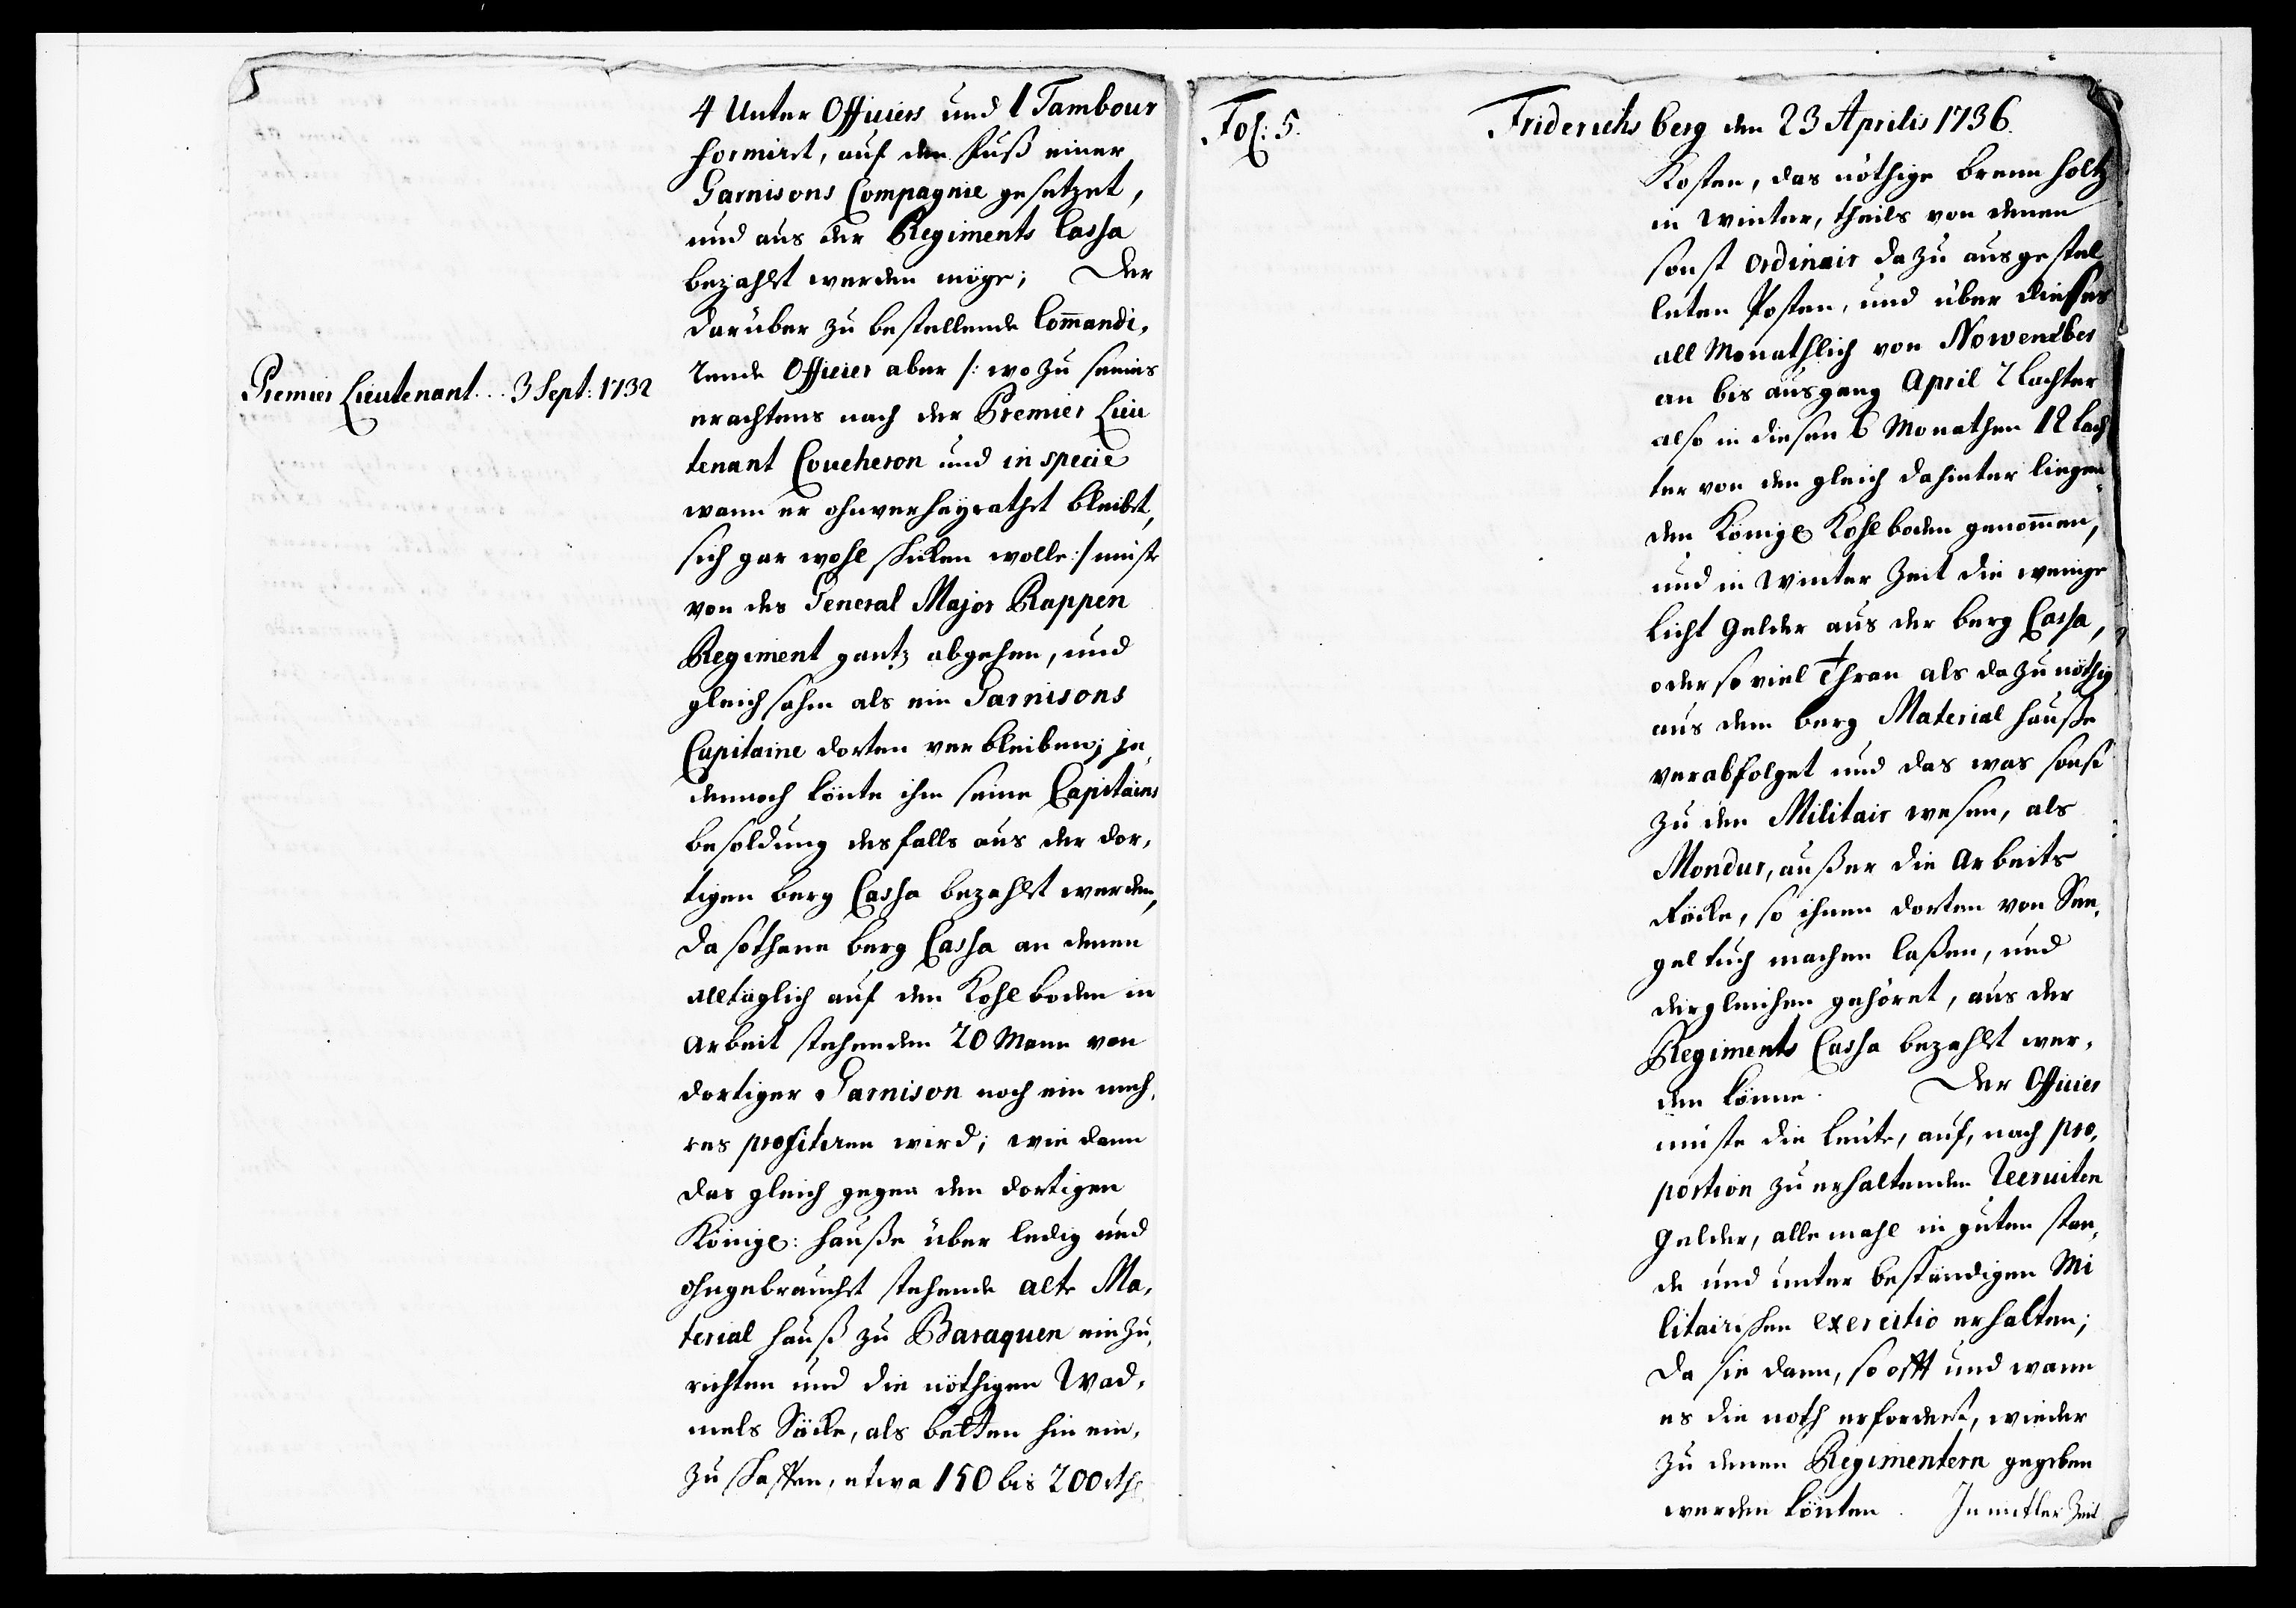 4 Unter Officiers und 1 Tambour
formirt, auf den Fuß einer
Garnisons Compagnie gesetzet,
und aus der Regiments Cassa
bezahlt werden möge; Der
darüber zu bestellende Com̄andi,
rende Officier aber /: wo zu seines
Premier Lieutenant... 3 Sept: 1732
erachtens nach der Premier Lieu
tenant Coucheron und in specie
wann er ohnverheyrathet bleibt,
sich gar wohl schicken wolle :/ müste
von des General Major Rappen
Regiment gantz abgehen, und
gleichsahm als ein Garnisons
Capitaine dorten verbleiben; je,
dennoch könte ihm seine Capitains
besoldung desfalls aus der dor,
tigen berg Cassa bezahlt werden,
da sothane berg Cassa an denen
alltäglich auf den Kohlboden in
Arbeit stehenden 20 Mann von
dortiger Garnison noch ein meh,
res profiteren wird; wie dann
das gleich gegen den dortigen
Königl: Hauße über ledig und
ohngebraucht stehende alte Ma,
terial Hauß zu Baraquen einzu,
richten und die nöthigen Wad,
mels Säcke, als betten hin ein,
zu schaffen, etwa 150 bis 200 rthl
Fol: 5.
Friderichs berg den 23 Aprilis 1736.
Kosten, das nöthige brenn holtz
in Winter, theils von denen
sonst ordinair dazu ausgestel
leten Posten, und über dießes
all Monathlich von Nowember
an bis ausgang April 2 lachter
also in diesen 6 Monathen 12 lach
ter von den gleich dahinter liegen,
den Königl Kohlboden genom̄en,
und in Winter Zeit die wenige
licht Gelder aus der berg Cassa,
oder so viel Thran als dazu nöthig
aus dem berg Material Hauße
verabfolget und das was sonst
zu den Militair wesen, als
Mondur, außer die Arbeits
Röcke, so ihnen dorten von See,
geltuch machen laßen, und
dergleichen gehöret, aus der
Regiments Cassa bezahlt wer,
den könne. Der Officier
müste die leute, auf, nach pro,
portion zu erhaltenden Recruiten
Gelder, allemahl in guten stan,
de und unter beständigen Mi
litairischen exercitio erhalten;
da sie dann, so offt und wann
es die noth erfordert, wieder
zu denen Regimentern gegeben
werden könten. In mitler Zeit